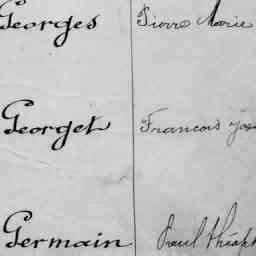 Georges Pierre Marie
Georget Francois
Germain Paul